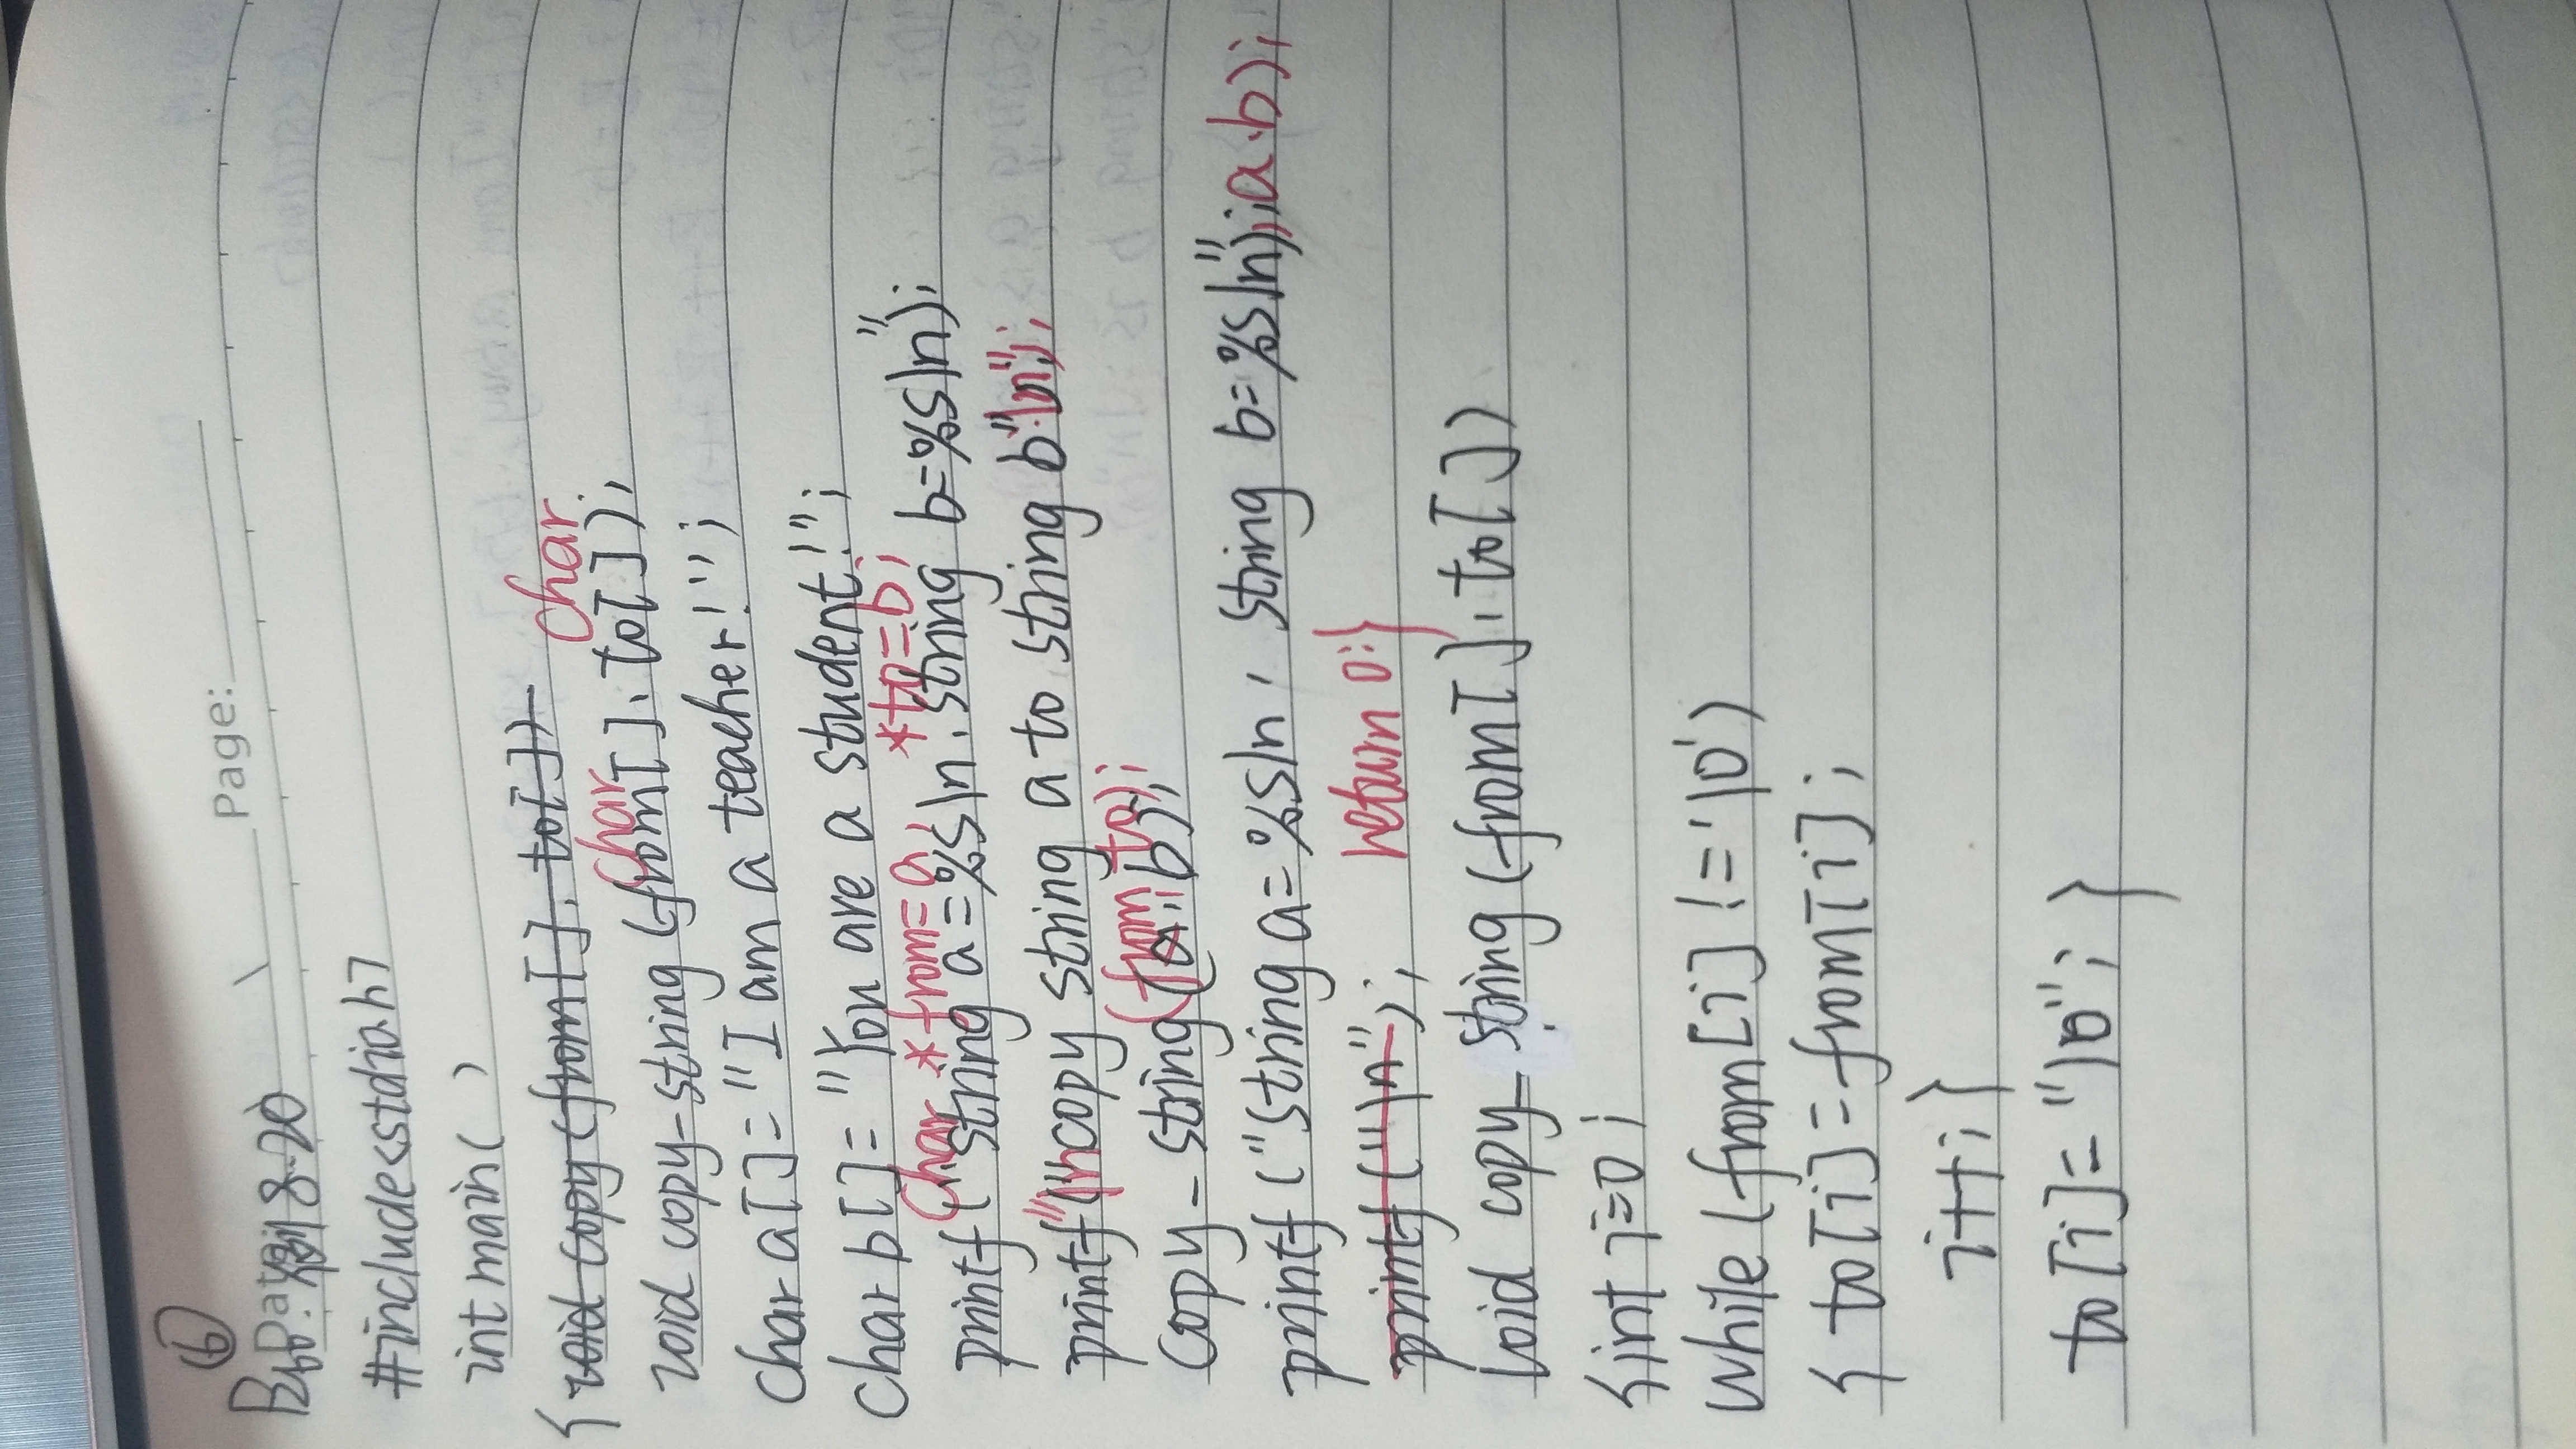 ⑥
Page:
P266. 例8.20
#include<stdio.h>
int main( )
{ void copy (from[], to[])
char char
void copy-string (from[], to[]);
char a[]="I am a teacher!";
char b[]="You are a student!";
char *from=a, *to=b;
printf ("string a=%s\n, string b=%s\n");
printf("\ncopy string a to string b"\n");
(from, to);
copy_string(a,b);
printf ("string a=%s\n, string b=%s\n");,a,b);
printf ("\n"); return 0;}
void copy_string (from[], to[])
{int i=0;
while (from[i] !='\0')
{ to[i]=from[i];
i++;}
to[i]="\0"; }